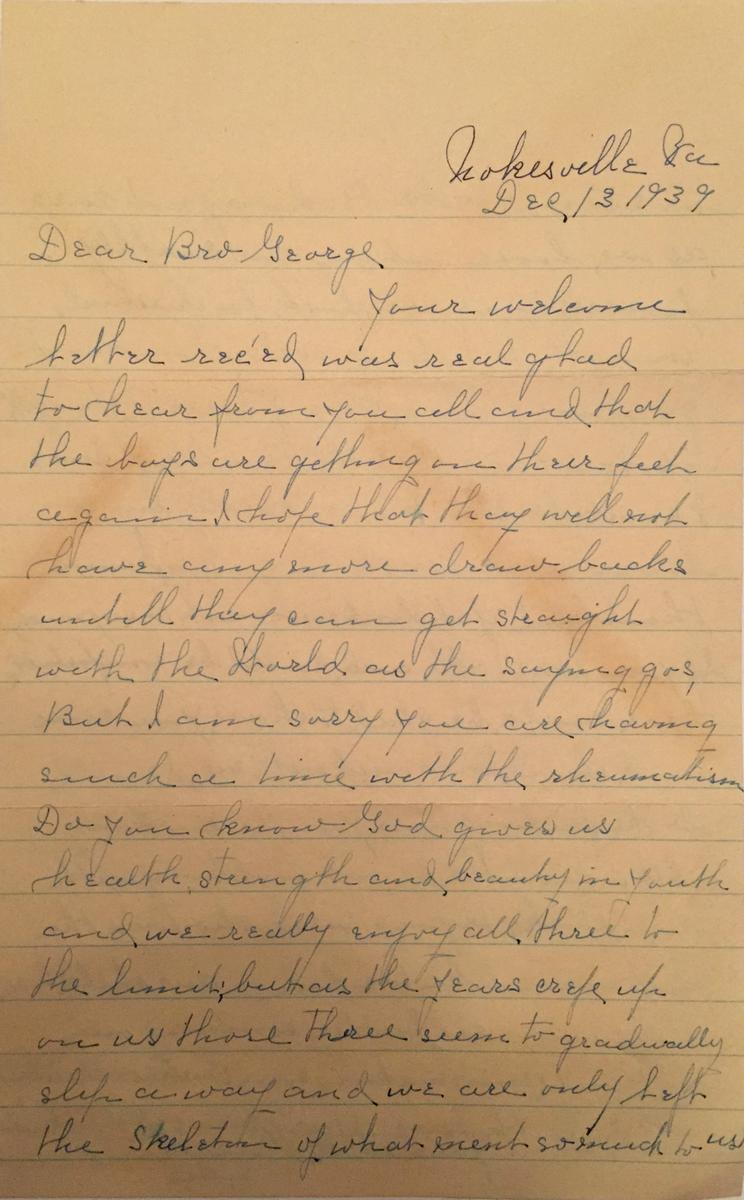 Nokesville Va
Dec, 13 1939
Dear Bro George,
Your welcome
letter rec'ed, was real glad
to hear from you all and that
the boys are getting on their feet
again I hope that thay will not
have any more draw backs
untill they can get straight
with the World as the saying gos,
But I am sorry you are having
such a time with the rheumatism
Do you know God gives us
health, strength and beauty in youth
and we really enjoy all three to
the limit, but as the years crepe up
on us those three seem to gradually
slip a way and we are only left
the Skeleton of what ment so much to us